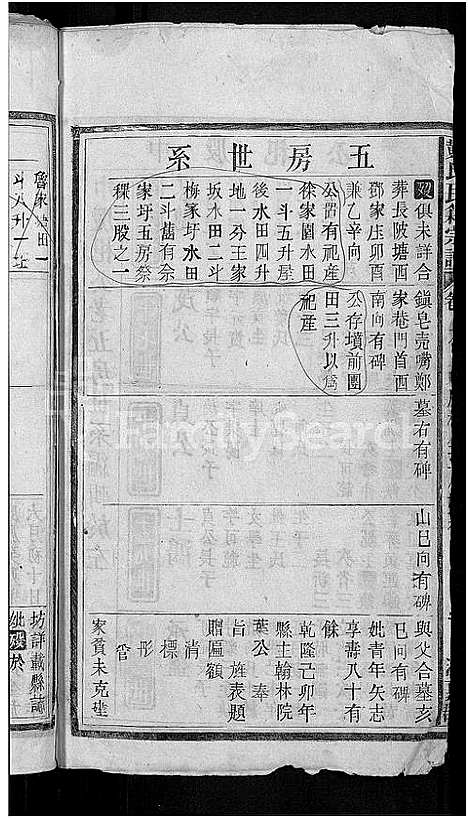 五房世系
俱未詳合
葬長陂塘西
鄧家庄卯酉
兼乙辛向
公畱有祀産
徐家園水田
一斗五升屋
後水田四升
地一分王家
坂水田二斗
梅家圩水田
二斗舊有佘
家圩五房祭
稞三股之一
鎮皂売嘴鄭
家巷門首酉
南向有碑
公存墳前園
田三升以爲
祀産
墓右有碑
山巳向有碑
與父合墓亥
巳向有碑
妣青年矢志
享壽八十有
餘
乾隆己卯年
縣主翰林院
葉公奉
旨旌表題
贈匾額
清標
彤管
家貧未克建
坊詳載縣誌
妣歿於
六日初十日
一斗八升一坵
FamilySearch